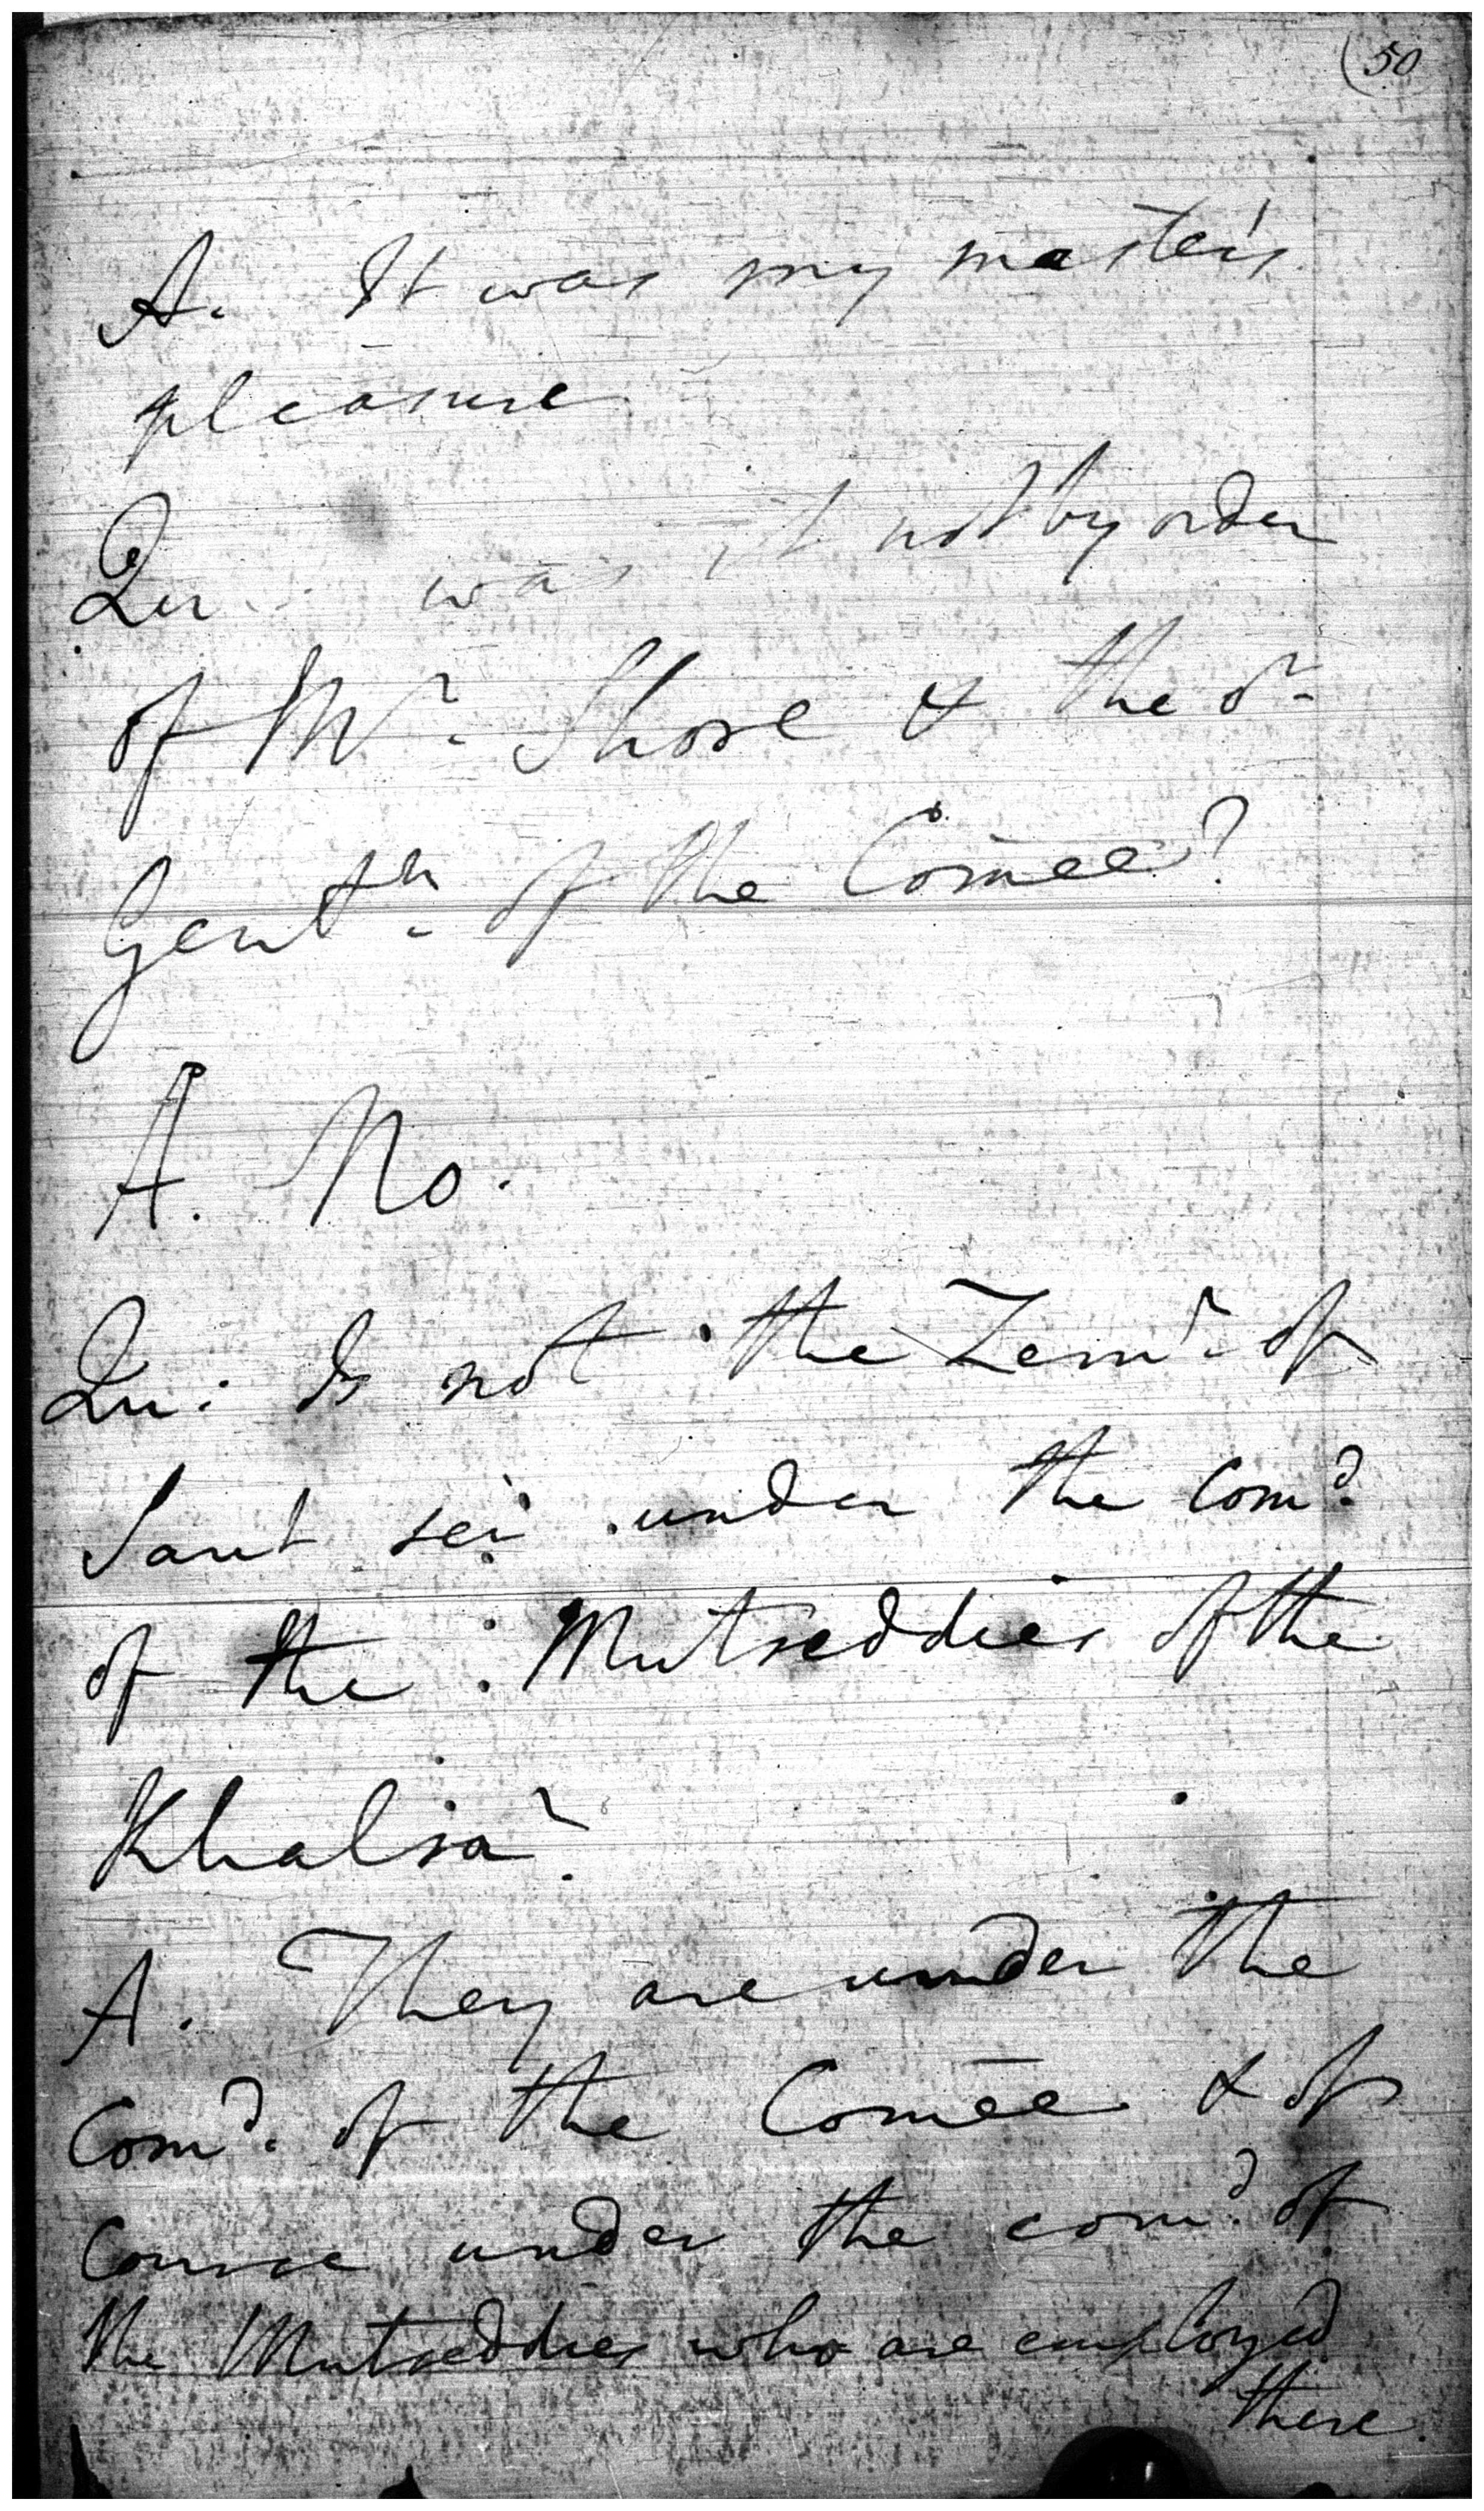 (50
A. It was my master's
pleasure
Qu was it not by order
of Mr. Shore & the or.
Gentn. of the Comee?
A. No.
Qu: Is not the Zemr. of
Sant sei under the Comd.
of the Mutseddies of the
Khalsa?
A. They are under the
Comd. of the Comee & of
course under the comd. of
the Mutseddies who are employed
there